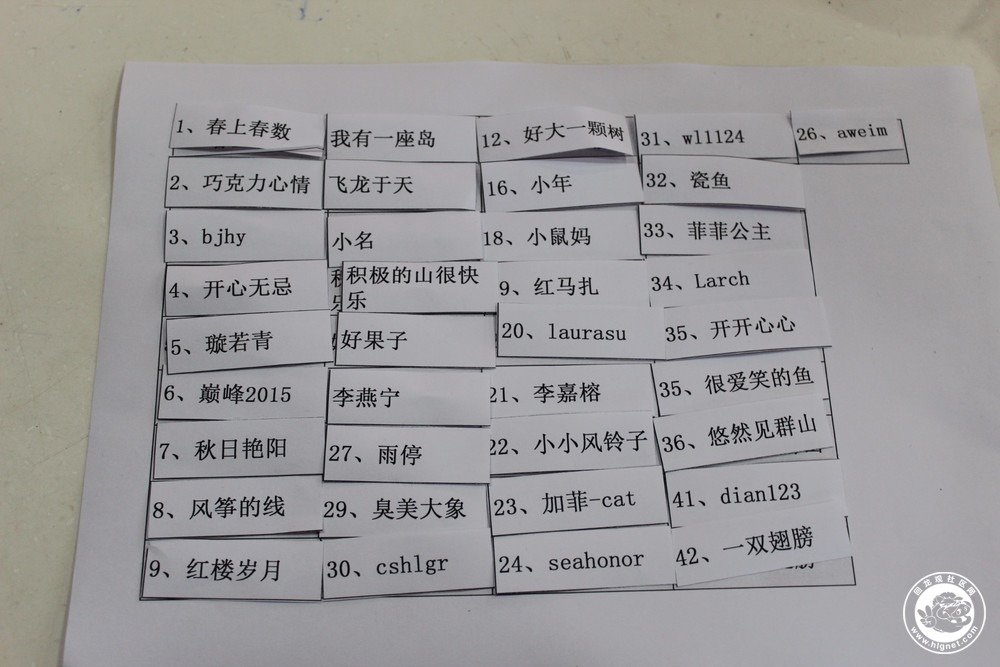 1、春上春数
我有一座岛
12、好大一颗树
31、wll124
26、aweim
2、巧克力心情
飞龙于天
16、小年
32、瓷鱼
3、bjhy
小名
18、小鼠妈
33、菲菲公主
4、开心无忌
积极的山很快
乐
9、红马扎
34、Larch
5、璇若青
好果子
20、laurasu
35、开开心心
6、巅峰2015
李燕宁
21、李嘉榕
35、很爱笑的鱼
7、秋日艳阳
27、雨停
22、小小风铃子
36、悠然见群山
8、风筝的线
29、臭美大象
23、加菲-cat
41、dian123
9、红楼岁月
30、cshlgr
24、seahonor
42、一双翅膀
回龙观社区网
www.hlgnet.com